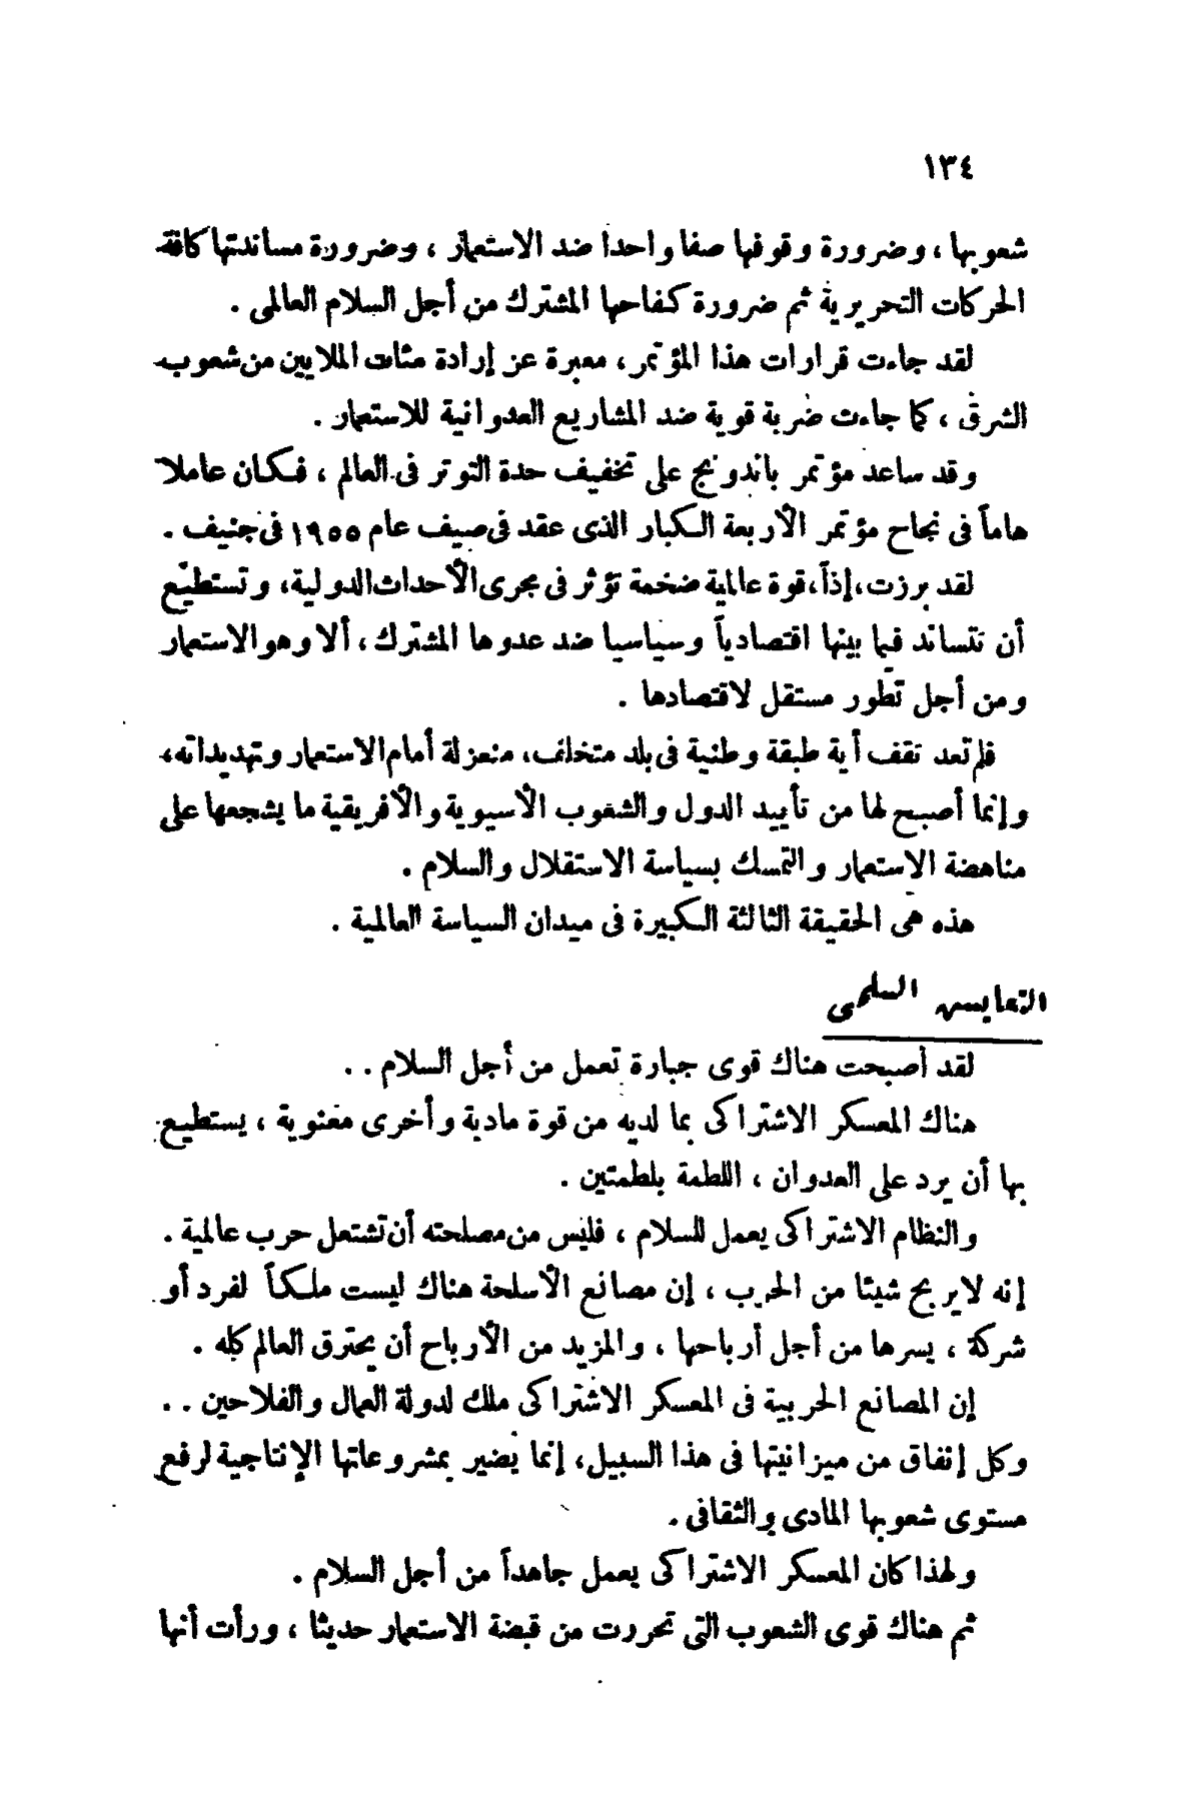 ١٣٤
شعوبها ، وضرورة وقوفها صفا واحدا ضد الاستعمار ، وضرورة مساندتها كافة
الحركات التحريرية ثم ضرورة كفاحها المشترك من أجل السلام العالمى .
لقد جاءت قرارات هذا المؤتمر ، معبرة عن إرادة مئات الملايين من شعوب
الشرق ، كما جاءت ضربة قوية ضد المشاريع العدوانية للاستعمار .
وقد ساعد مؤتمر باندونج على تخفيف حدة التوتر فى العالم ، فكان عاملا
هاماً فى نجاح مؤتمر الأربعة الكبار الذى عقد فى صيف عام ١٩٥٥ فى جنيف .
لقد برزت ، إذاً ، قوة عالمية ضخمة تؤثر فى مجرى الأحداث الدولية ، وتستطيع
أن تتساند فيما بينها اقتصادياً وسياسيا ضد عدوها المشترك ، ألا وهو الاستعمار
ومن أجل تطور مستقل لاقتصادها .
فلم تعد تقف أية طبقة وطنية فى بلد متخلف ، منعزلة أمام الاستعمار وتهديداته ،
وإنما أصبح لها من تأييد الدول والشعوب الأسيوية والأفريقية ما يشجعها على
مناهضة الاستعمار والتمسك بسياسة الاستقلال والسلام .
هذه هى الحقيقة الثالثة الكبيرة فى ميدان السياسة العالمية .
التعايش السلمى
لقد أصبحت هناك قوى جبارة تعمل من أجل السلام . .
هناك المعسكر الاشتراكى بما لديه من قوة مادية وأخرى معنوية ، يستطيع
بها أن يرد على العدوان ، اللطمة بلطمتين .
والنظام الاشتراكى يعمل للسلام ، فليس من مصلحته أن تشتعل حرب عالمية .
إنه لا يربح شيئا من الحرب ، إن مصانع الأسلحة هناك ليست ملكاً لفرد أو
شركة ، يسرها من أجل أرباحها ، والمزيد من الأرباح أن يحترق العالم كله .
إن المصانع الحربية فى المعسكر الاشتراكى ملك لدولة العمال والفلاحين . .
وكل إنفاق من ميزانيتها فى هذا السبيل ، إنما يضير بمشروعاتها الإنتاجية لرفع
مستوى شعوبها المادى والثقافى .
ولهذا كان المعسكر الاشتراكى يعمل جاهداً من أجل السلام .
ثم هناك قوى الشعوب التى تحررت من قبضة الاستعمار حديثا ، ورأت أنها